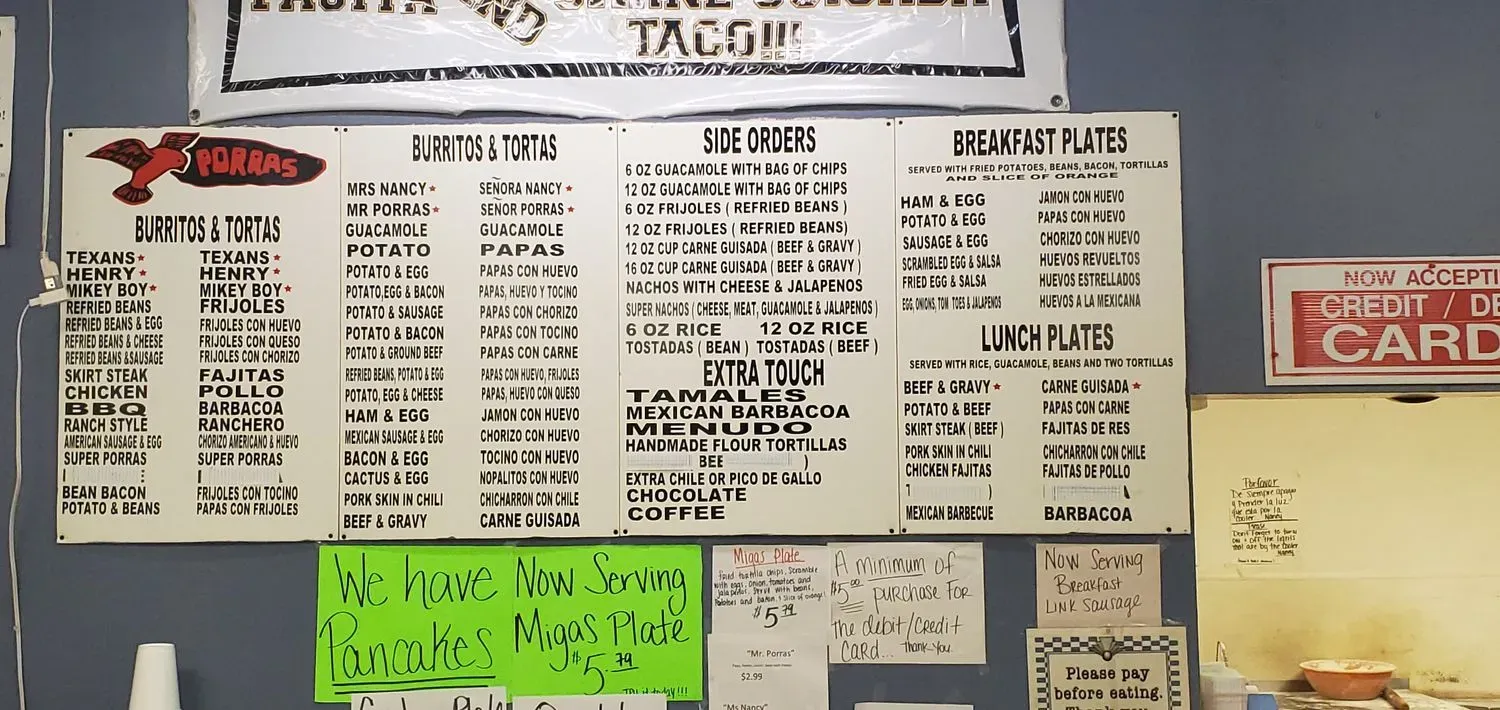 FAJITA AND CARNE GUISADA
TACO!!!
PORRAS
BURRITOS & TORTAS
TEXANS TEXANS
HENRY HENRY
MIKEY BOY MIKEY BOY
REFRIED BEANS FRIJOLES
REFRIED BEANS & EGG FRIJOLES CON HUEVO
REFRIED BEANS & CHEESE FRIJOLES CON QUESO
REFRIED BEANS &SAUSAGE FRIJOLES CON CHORIZO
SKIRT STEAK FAJITAS
CHICKEN POLLO
BBQ BARBACOA
RANCH STYLE RANCHERO
AMERICAN SAUSAGE & EGG CHORIZO AMERICANO & HUEVO
SUPER PORRAS SUPER PORRAS
BEAN BACON FRIJOLES CON TOCINO
POTATO & BEANS PAPAS CON FRIJOLES
BURRITOS & TORTAS
MRS NANCY SEÑORA NANCY
MR PORRAS SEÑOR PORRAS
GUACAMOLE GUACAMOLE
POTATO PAPAS
POTATO & EGG PAPAS CON HUEVO
POTATO,EGG & BACON PAPAS, HUEVO Y TOCINO
POTATO & SAUSAGE PAPAS CON CHORIZO
POTATO & BACON PAPAS CON TOCINO
POTATO & GROUND BEEF PAPAS CON CARNE
REFRIED BEANS, POTATO & EGG PAPAS CON HUEVO, FRIJOLES
POTATO, EGG & CHEESE PAPAS, HUEVO CON QUESO
HAM & EGG JAMON CON HUEVO
MEXICAN SAUSAGE & EGG CHORIZO CON HUEVO
BACON & EGG TOCINO CON HUEVO
CACTUS & EGG NOPALITOS CON HUEVO
PORK SKIN IN CHILI CHICHARRON CON CHILE
BEEF & GRAVY CARNE GUISADA
SIDE ORDERS
6 OZ GUACAMOLE WITH BAG OF CHIPS
12 OZ GUACAMOLE WITH BAG OF CHIPS
6 OZ FRIJOLES ( REFRIED BEANS )
12 OZ FRIJOLES ( REFRIED BEANS)
12 OZ CUP CARNE GUISADA ( BEEF & GRAVY )
16 OZ CUP CARNE GUISADA ( BEEF & GRAVY )
NACHOS WITH CHEESE & JALAPENOS
SUPER NACHOS ( CHEESE, MEAT, GUACAMOLE & JALAPENOS )
6 OZ RICE 12 OZ RICE
TOSTADAS ( BEAN ) TOSTADAS ( BEEF )
EXTRA TOUCH
TAMALES
MEXICAN BARBACOA
MENUDO
HANDMADE FLOUR TORTILLAS
BEE )
EXTRA CHILE OR PICO DE GALLO
CHOCOLATE
COFFEE
BREAKFAST PLATES
SERVED WITH FRIED POTATOES, BEANS, BACON, TORTILLAS
AND SLICE OF ORANGE
HAM & EGG JAMON CON HUEVO
POTATO & EGG PAPAS CON HUEVO
SAUSAGE & EGG CHORIZO CON HUEVO
SCRAMBLED EGG & SALSA HUEVOS REVUELTOS
FRIED EGG & SALSA HUEVOS ESTRELLADOS
EGG, ONIONS, TOM TOES & JALAPENOS HUEVOS A LA MEXICANA
LUNCH PLATES
SERVED WITH RICE, GUACAMOLE, BEANS AND TWO TORTILLAS
BEEF & GRAVY CARNE GUISADA
POTATO & BEEF PAPAS CON CARNE
SKIRT STEAK ( BEEF ) FAJITAS DE RES
PORK SKIN IN CHILI CHICHARRON CON CHILE
CHICKEN FAJITAS FAJITAS DE POLLO
MEXICAN BARBECUE BARBACOA
NOW ACCEPTI
CREDIT / DE
CARD
We have
Pancakes
Now Serving
Migas Plate
$5.79
Migas Plate
fried tortilla chips, scramble
with eggs, onion, tomatoes and
jalapeños. Serve with beans,
potatoes and bacon, & slice of orange!
$5.79
"Mr. Porras"
$2.99
"Ms Nancy"
A minimum of
$5.00 purchase For
the debit/credit
Card... thank you.
Now Serving
Breakfast
LINK Sausage
Please pay
before eating.
Porfavor
De Siempre apagar
y Prender la luz
que esta por la
cooler. Nancy
Please
Dont Forget to turn
on & off the lights
that are by the cooler
Nancy